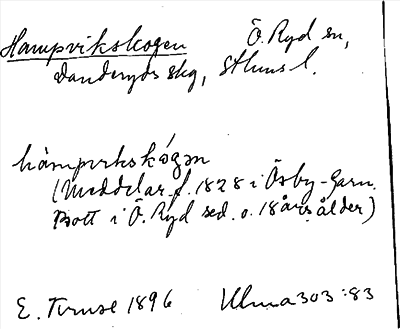 Hampvikskogen Ö. Ryd sn,
Danderyds skg, Sthms l.
hámpvikskógen
(Meddelar. f. 1828 i Össby-Garn.
Bott i Ö. Ryd sed. o. 18 års ålder)
E. Tenow 1896 Ulma 303:83